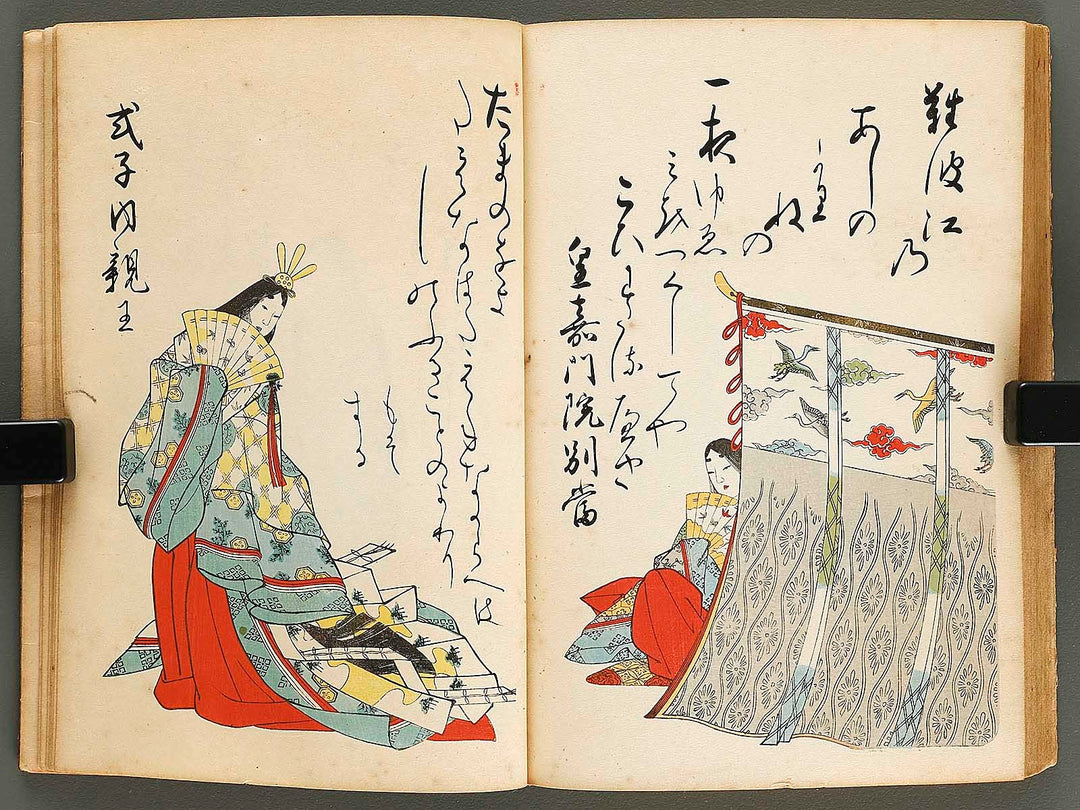 難波江乃
あしの
かりねの
一夜ゆゑ
みをつくしてや
こひわたるへき
皇嘉門院別當
たまのをよ
たえなはたえねなからへは
しのふることのよわり
もそ
する
式子内親王